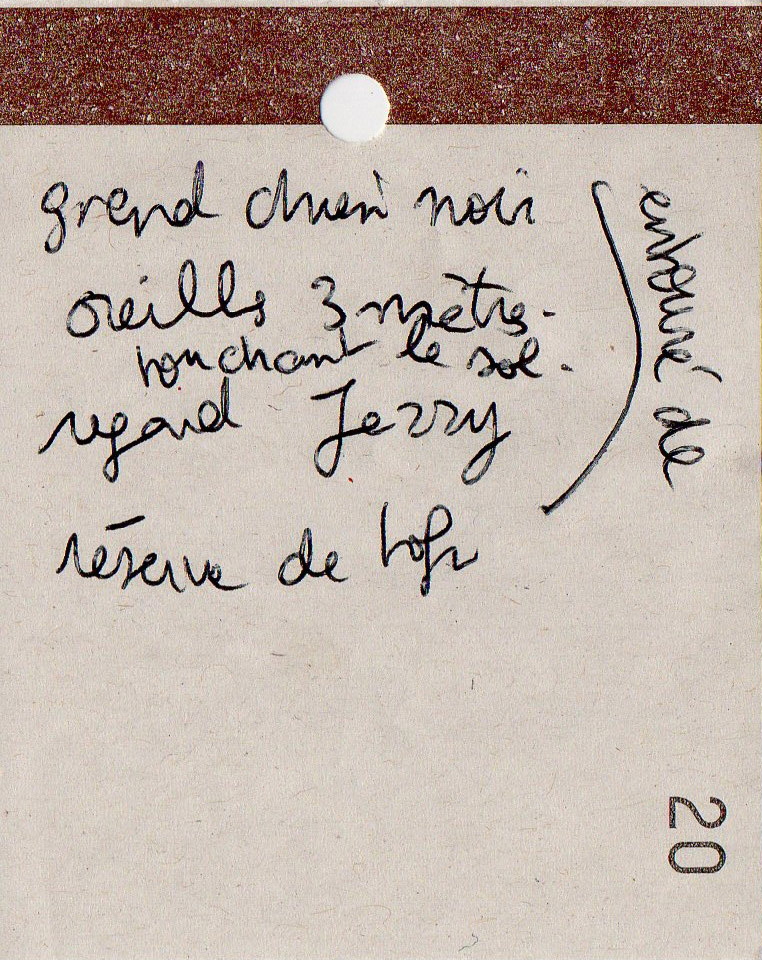 grand chien noir
oreilles 3 mètres.
touchant le sol.
regard Jerry
réserve de tofu
entouré de
20